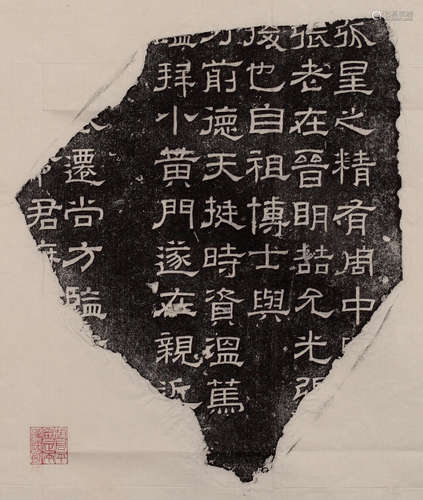 弧星之精有周中
張老在晉明喆允光
後也自祖博士與
前德天挺時資溫篤
拜小黃門遂在親近
遷尚方監
君